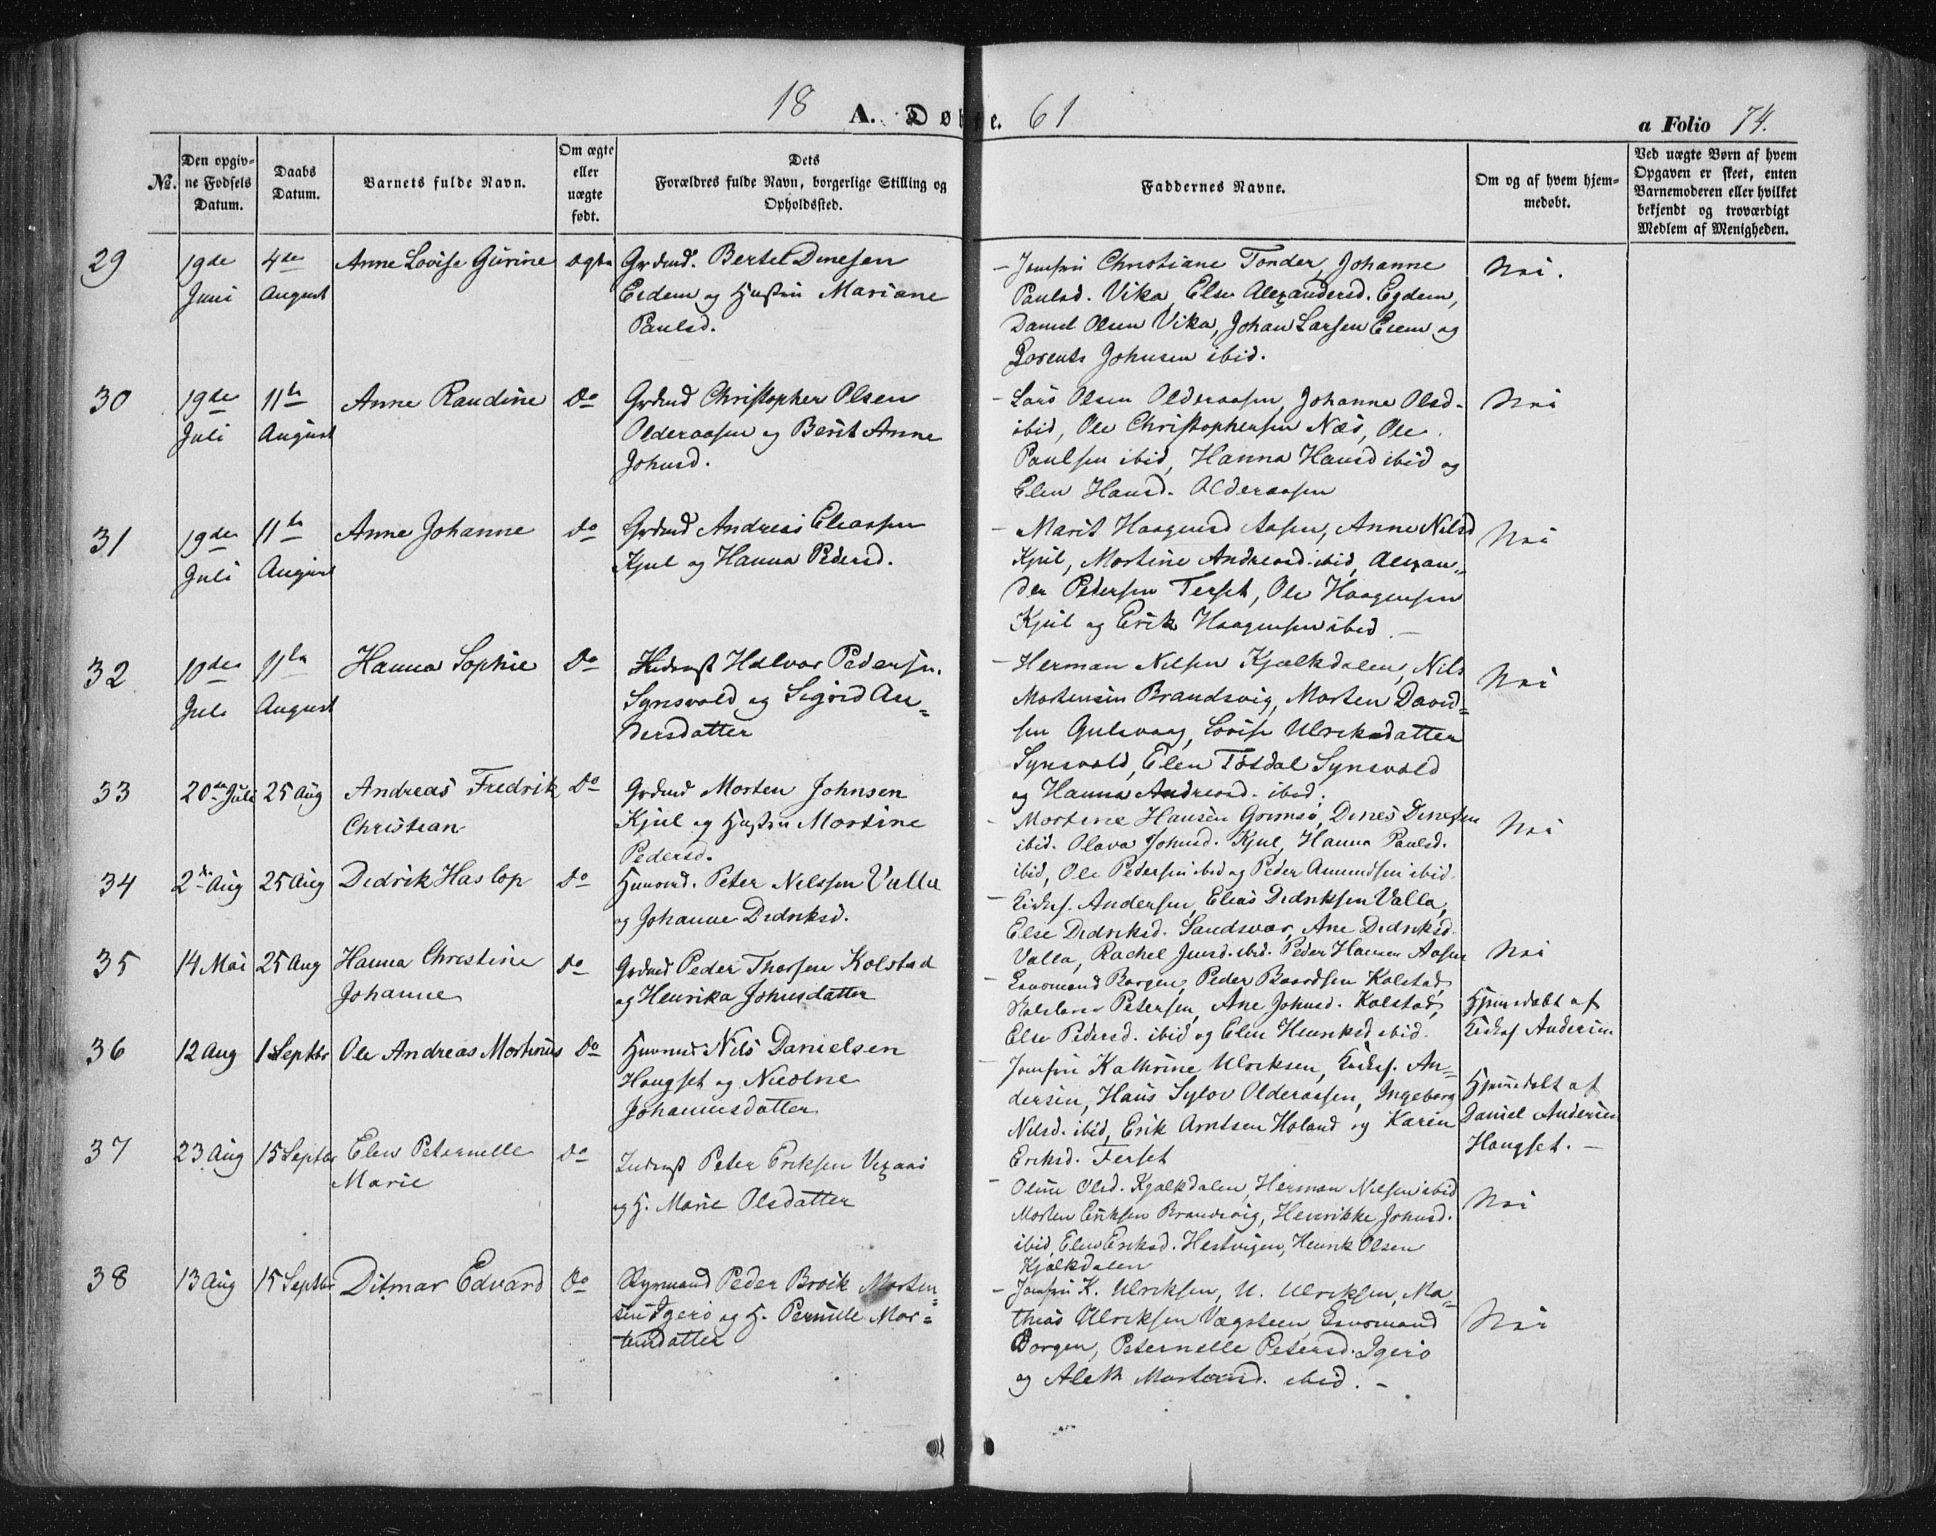 18 A. Døbte. 61
a Folio 74.
No.
Den opgiv-
ne Fødsels
Datum.
Daabs
Datum.
Barnets fulde Navn.
Om ægte
eller
uægte
født.
Dets
Forældres fulde Navn, borgerlige Stilling og
Opholdssted.
Faddernes Navne.
Om og af hvem hjem-
medøbt.
Ved uægte Børn af hvem
Opgaven er skeet, enten
Barnemoderen eller hvilket
bekjendt og troværdigt
Medlem af Menigheden.
29
19de
Juni
4de
August
Anne Lovise Gurine
Ægte
Grdmd. Bertel Dinesen
Eidem og Hustru Mariane
Paulsd.
- Jomfru Christiane Tonder, Johanne
Paulsd. Vika, Else Alexandersd. Egdem,
Daniel Olsen Vika, Johan Larsen Eiem og
Lorents Johnsen ibid.
Nei.
30
19de
Juli
11te
August
Anne Raudine
Do
Grdmd Christopher Olsen
Olderaasen og Berit Anne
Johnsd.
- Lars Olsen Olderaasen, Johanne Olsd.
ibid, Ole Christophersen Næs, Ole
Paulsen ibid, Hanna Hansd ibid og
Elen Hansd. Olderaasen
Nei
31
19de
Juli
11te
August
Anne Johanne
Do
Grdmd Andreas Eliassen
Kjul og Hanna Pedersd.
- Marit Haagensd Aasen, Anne Nilsd
Kjul, Mortine Andreasd. ibid, Alexan-
der Petersen Terset, Ole Haagensen
Kjul og Erik Haagensen ibid. -
Nei
32
10de
Juli
11te
August
Hanna Sophie
Do
Halvor Pedersen.
Synsvold og Sigrid An-
dersdatter
- Herman Nilsen Kjælkdalen, Nils
Mortensen Brandsvig, Morten David-
sen Gulsvaag, Lovise Ulriksdatter
Synsvold, Elen Tosdal Synsvold
og Hanna Andreasd. ibid.
Nei
33
20de Juli
25 Aug
Andreas Fredrik
Christian
Do
Grdmd Morten Johnsen
Kjul og Hustru Mortine
Pedersd.
- Mortine Hansen Grimsø, Dines Dinesen
ibid. Olava Johnsd. Kjul, Hanna Paulsd.
ibid, Ole Pedersen ibid og Peder Amundsen ibid.
Nei
34
2de Aug
25 Aug
Didrik Haslop
Do
Huusmd. Peter Nilssen Valla
og Johanne Didriksd.
- Kirkes. Andersen, Elias Didriksen Valla,
Else Didriksd. Sandsvær, Ane Didriksd.
Valla, Rachel Jensd. ibid. Peder Hansen Aasen
Nei
35
14 Mai
25 Aug
Hanna Christine
Johanne
Do
Grdmd Peder Thorsen Kolstad
og Henrika Johnsdatter
- Borgen, Peder Baardsen Kolstad,
Petersen, Ane Johnsd. Kolstad,
Else Pedersd. ibid og Elen Henriksd ibid.
Hjemmedøbt af
Kirkes Andersen
36
12 Aug
1 Septbr
Ole Andreas Mortinus
Do
Huusmd Nils Danielsen
Haugset og Nicoline
Johannesdatter
- Jomfru Kathrine Ulriksen, Kirkes. An-
dersen, Hans Sylov Olderaasen, Ingeborg
Nilsd. ibid, Erik Arntsen Holand og Karen
Eriksd. Terset
Hjemmedøbt af
Daniel Andersen
Haugset. -
37
23 Aug
15 Septbr
Elen Peternelle
Marie
Do
Inderst Peter Eriksen Vexaas
og H. Marie Olsdatter
- Oline Olsd. Kjælkdalen, Herman Nilsen ibid
Morten Eriksen Brandsvig, Henrikke Johnsd.
ibid, Elen Eriksd. Hestvigen, Henrik Olsen
Kjælkdalen
Nei
38
13 Aug
15 Septbr
Ditmar Edvard
Do
Peder Broik Morten-
sen Igerø og H. Pernille Mor-
tensdatter
- Jomfru K. Ulriksen, U. Ulriksen, Ma-
thias Ulriksen Vægsteen,
Borgen, Peternelle Petersd. Igerø
og Aleth Mortensd. ibid. -
Nei